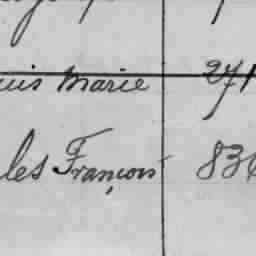 uis Marie 271
les François 836